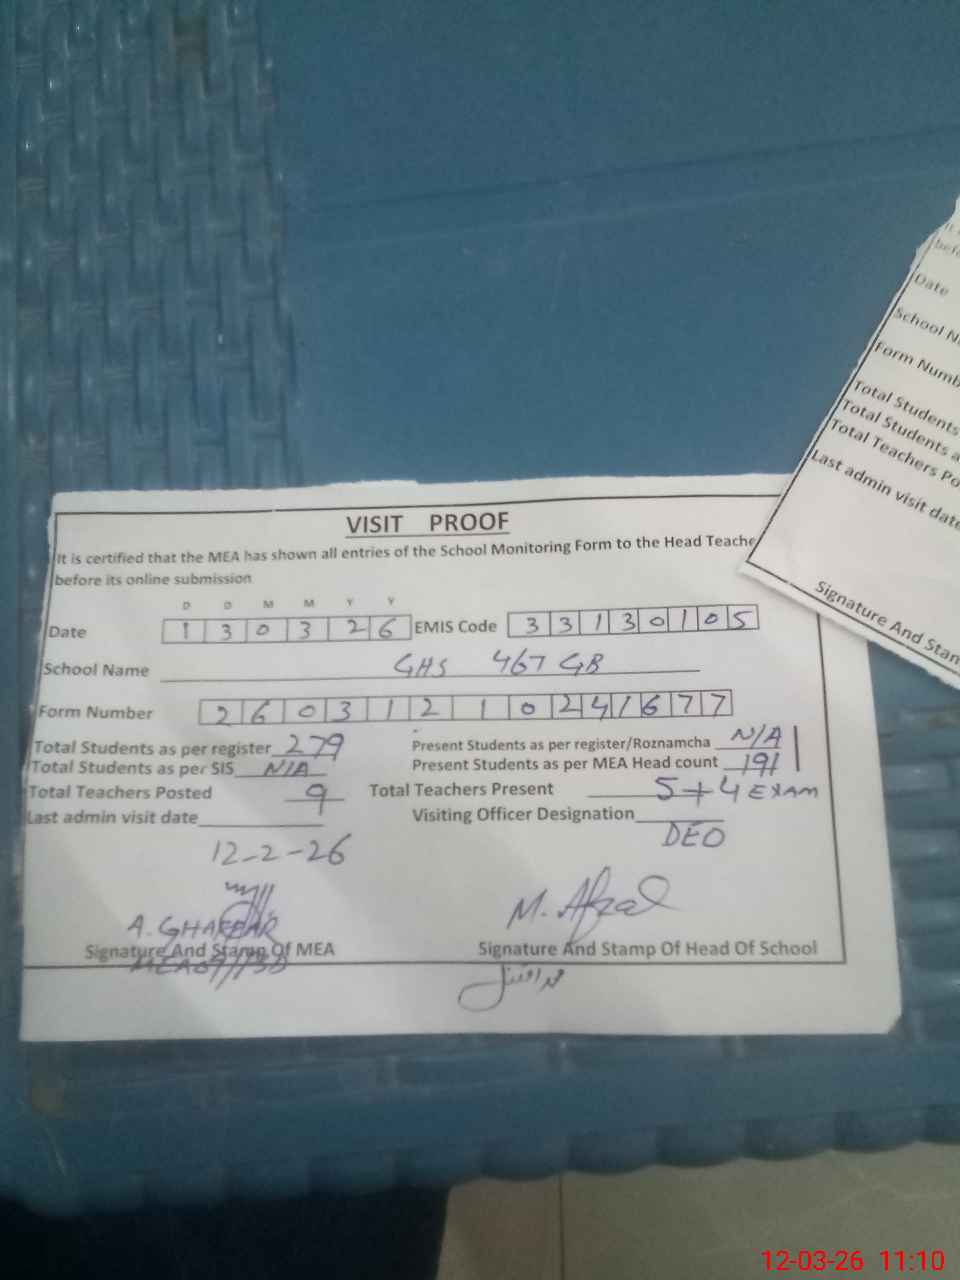 VISIT PROOF
It is certified that the MEA has shown all entries of the School Monitoring Form to the Head Teache
before its online submission
D D M M Y Y
Date 1 3 0 3 2 6 EMIS Code 3 3 1 3 0 1 0 5
School Name GHS 467 GB
Form Number 2 6 0 3 1 2 1 0 2 4 1 6 7 7
Total Students as per register 279 Present Students as per register/Roznamcha N/A
Total Students as per SIS N/A Present Students as per MEA Head count 191
Total Teachers Posted 9 Total Teachers Present 5+4 EXAM
Last admin visit date Visiting Officer Designation
12-2-26 DEO
A. GHAFFAR M. Afzal
Signature And Stamp Of MEA Signature And Stamp Of Head Of School
محمد افضل
Date
School N
Form Numb
Total Students
Total Students a
Total Teachers Po
Last admin visit date
Signature And Stam
12-03-26 11:10